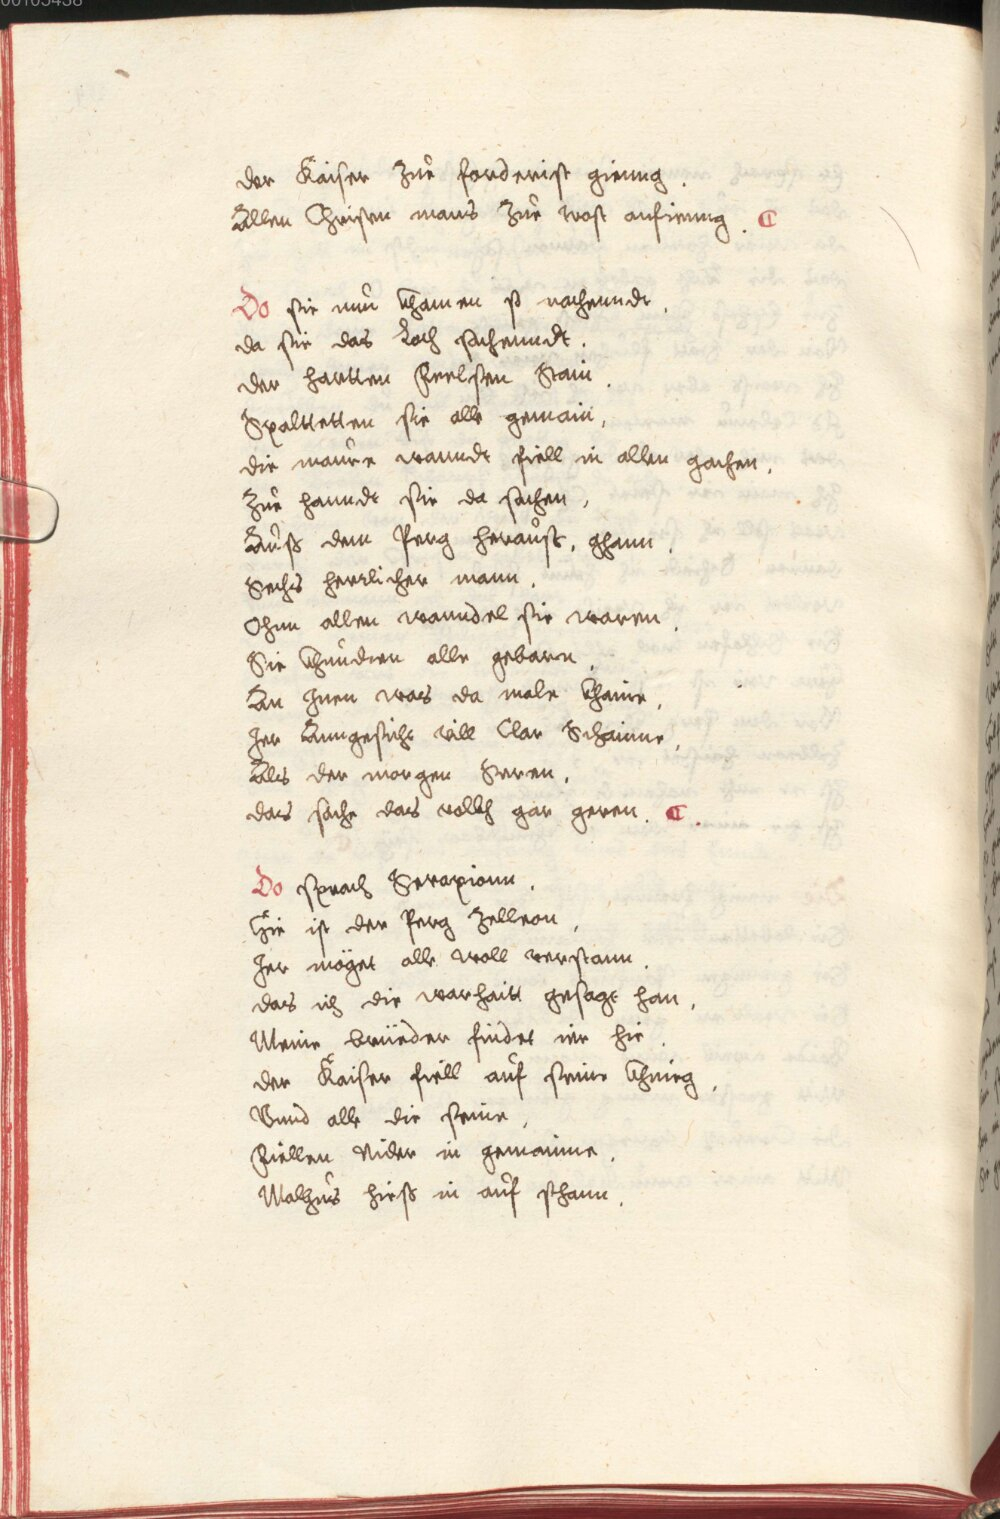 der Kaiser Zuͦ forderist gienng .
Allen Christen maus Zuͦ trost anfienng . ¶
Do sie nuͦn Khamen ſ nachenndt ,
da sie das Loch sachenndt .
der hartten Veelsen Stain .
Spalttetten sie alle gemain ,
die maure wanndt fiell in allen gachen ,
Zuͦ hanndt sie da sachen ,
Auͦß dem Perg herauͦst , ghann .
Sechs herrlicher mann .
Ohnn allen wanndel sie waren .
Sie Khundten alle gebarn .
An Jnen was da male Khaine ,
Jer Anngesicht vill Clar Schainne ,
Als der morgen Steren ,
das sache das vollkh gar geren . ¶
Do sprach Serapionn ,
Hie ist der Perg Zelleon ,
Jer möget alle woll verstann .
das ich die warhaitt gesagt han ,
Meine brüeder findet ier hie .
der Kaiser fiell auͦf seine Khnieg ,
Vnnd alle die seine ,
Viellen Nider in gemainne .
Malchuͦs hieß in auͦf sthann .